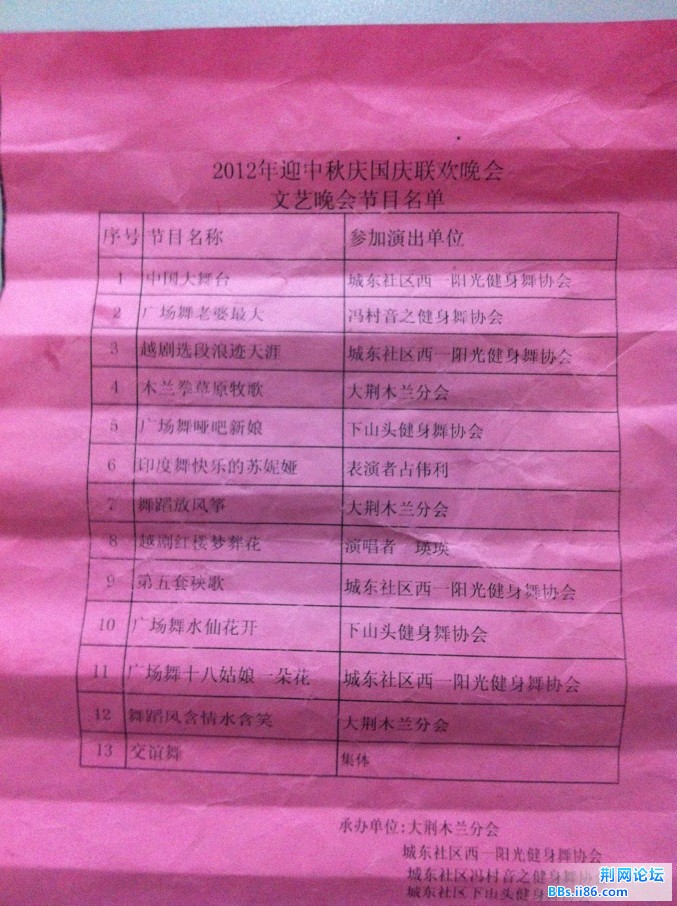 2012年迎中秋庆国庆联欢晚会
文艺晚会节目名单
序号 节目名称 参加演出单位
1 中国大舞台 城东社区西一阳光健身舞协会
2 广场舞老婆最大 冯村音之健身舞协会
3 越剧选段浪迹天涯 城东社区西一阳光健身舞协会
4 木兰拳草原牧歌 大荆木兰分会
5 广场舞哑吧新娘 下山头健身舞协会
6 印度舞快乐的苏妮娅 表演者占伟利
7 舞蹈放风筝 大荆木兰分会
8 越剧红楼梦葬花 演唱者 瑛瑛
9 第五套秧歌 城东社区西一阳光健身舞协会
10 广场舞水仙花开 下山头健身舞协会
11 广场舞十八姑娘一朵花 城东社区西一阳光健身舞协会
12 舞蹈风含情水含笑 大荆木兰分会
13 交谊舞 集体
承办单位:大荆木兰分会
城东社区西一阳光健身舞协会
城东社区冯村音之健身舞协
城东社区下山头健身
荆网论坛
BBs.ii86.com